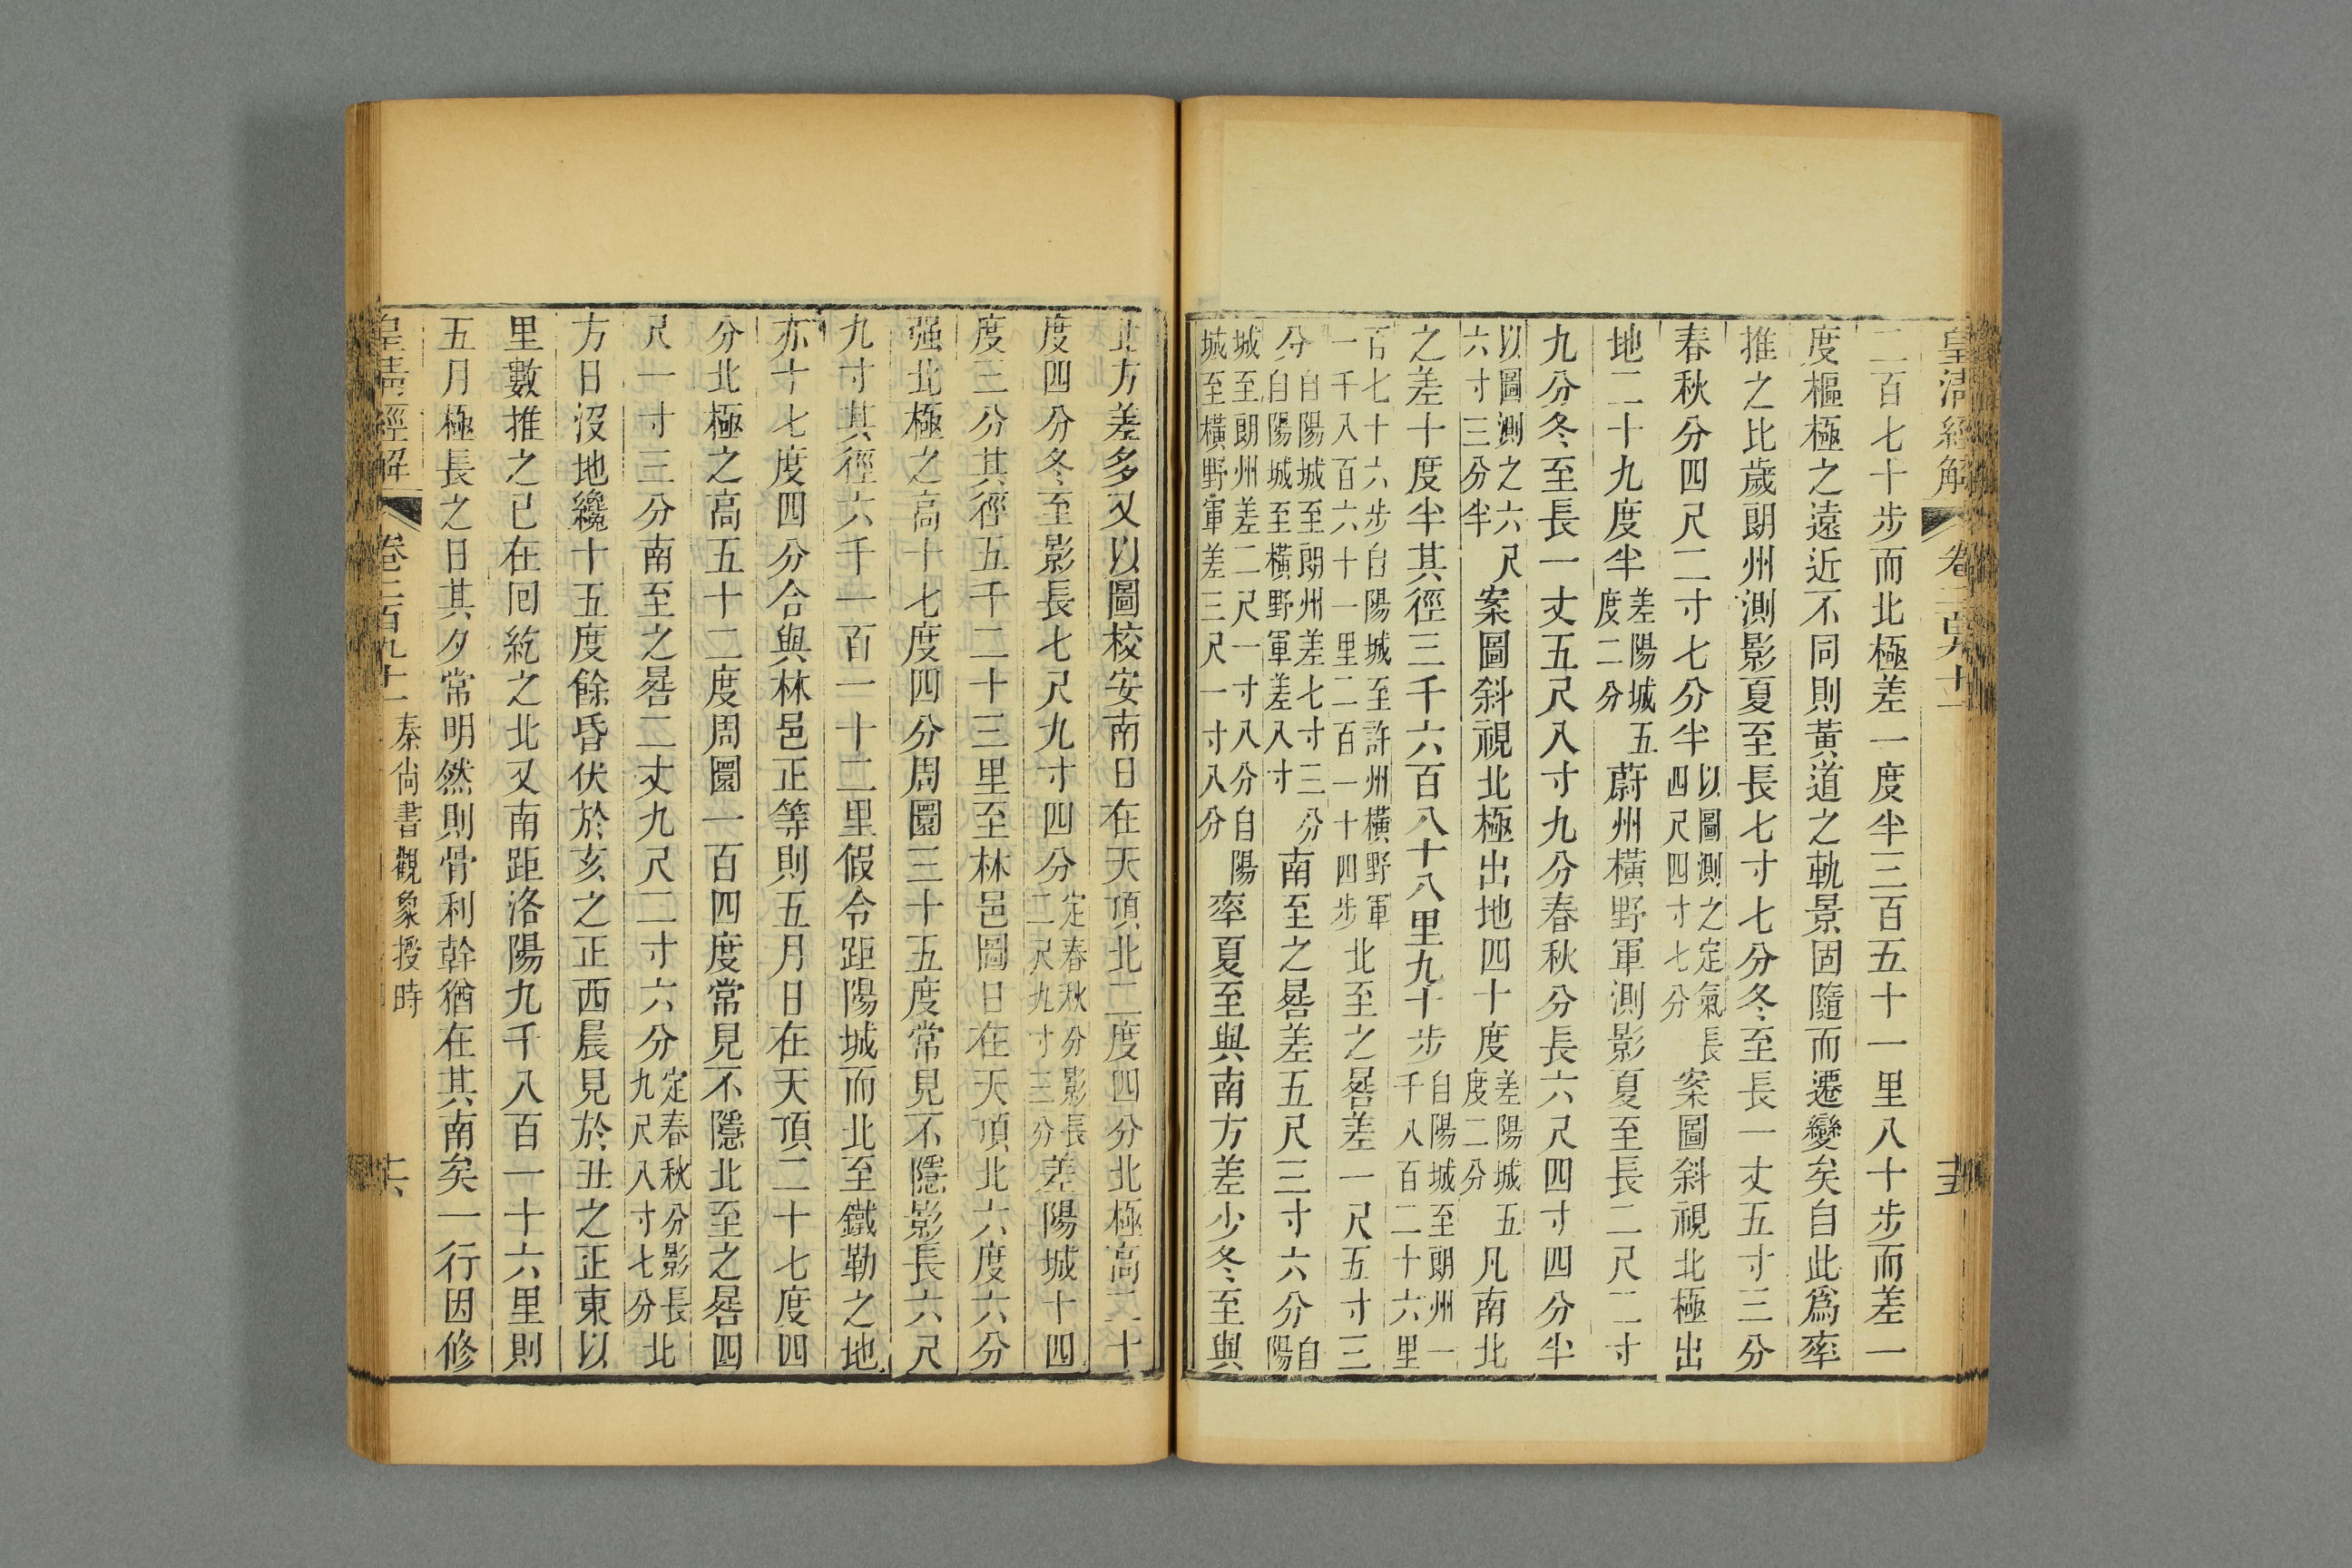 皇清經解 卷二百九十一
二百七十步而北極差一度半三百五十一里八十步而差一
度樞極之遠近不同則黃道之軌景固隨而遷變矣自此爲率
推之比歲朗州測影夏至長七寸七分冬至長一丈五寸三分
春秋分四尺二寸七分半以圖測之定氣長四尺四寸七分案圖斜視北極出
地二十九度半差陽城五度二分蔚州橫野軍測影夏至長二尺二寸
九分冬至長一丈五尺八寸九分春秋分長六尺四寸四分半
以圖測之六尺六寸三分半案圖斜視北極出地四十度差陽城五度二分凡南北
之差十度半其徑三千六百八十八里九十步自陽城至朗州一千八百二十六里
百七十六步自陽城至許州橫野軍一千八百六十一里二百一十四步北至之晷差一尺五寸三
分自陽城至朗州差七寸三分自陽城至橫野軍差八寸南至之晷差五尺三寸六分自陽
城至朗州差二尺一寸八分自陽城至橫野軍差三尺一寸八分率夏至與南方差少冬至與
北方差多又以圖校安南日在天頂北二度四分北極高二十
度四分冬至影長七尺九寸四分定春秋分影長二尺九寸三分差陽城十四
度三分其徑五千二十三里至林邑圖日在天頂北六度六分
强北極之高十七度四分周圜三十五度常見不隱影長六尺
九寸其徑六千一百一十二里假令距陽城而北至鐵勒之地
亦十七度四分合與林邑正等則五月日在天頂二十七度四
分北極之高五十二度周圜一百四度常見不隱北至之晷四
尺一寸三分南至之晷二丈九尺二寸六分定春秋分影長九尺八寸七分北
方日沒地纔十五度餘昏伏於亥之正西晨見於丑之正東以
里數推之已在回紇之北又南距洛陽九千八百一十六里則
五月極長之日其夕常明然則骨利幹猶在其南矣一行因修
皇清經解 卷二百九十一 秦尙書觀象授時